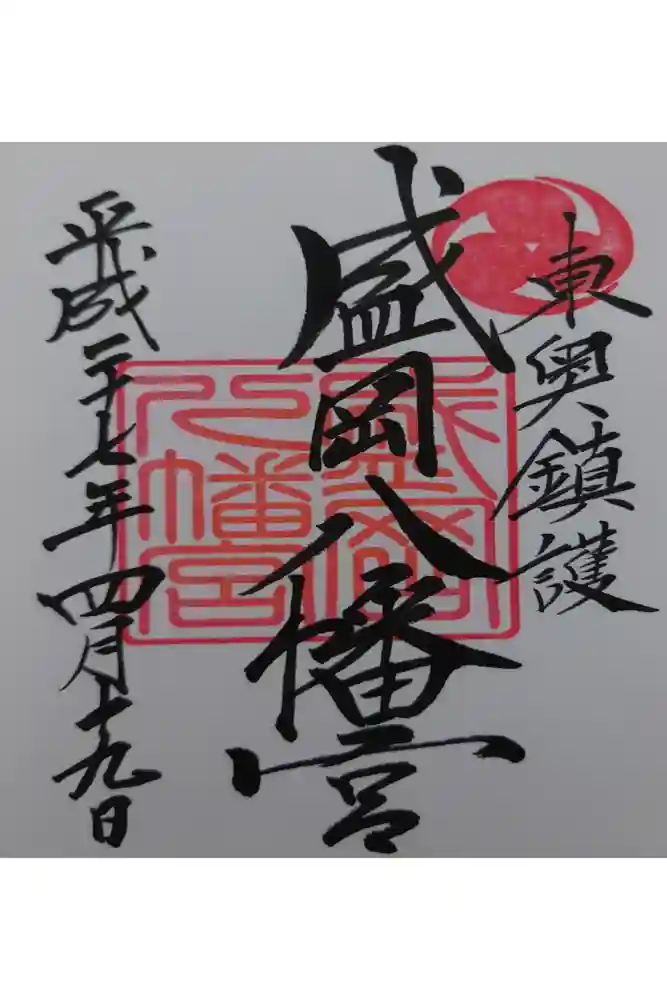 東奥鎮護
盛岡八幡宮
盛岡八幡宮
平成二十七年四月十九日